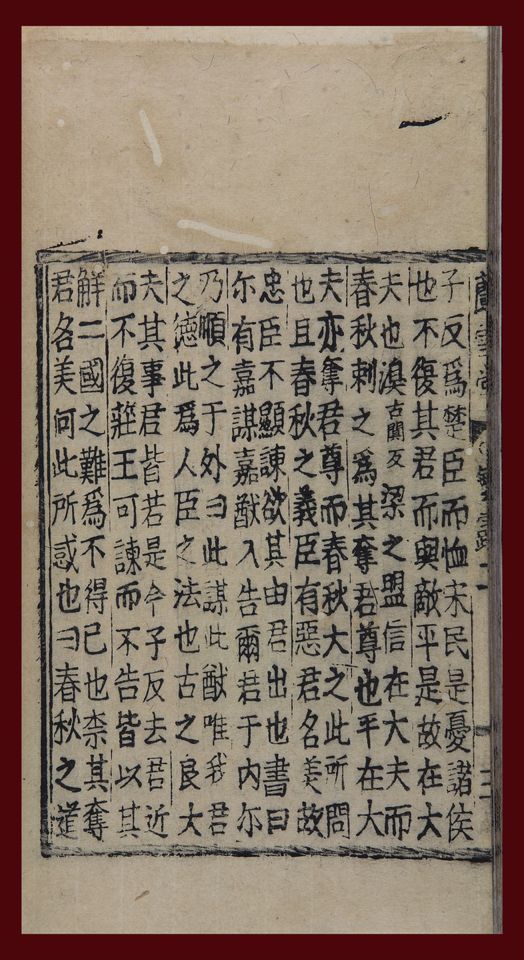 蘭雪堂
子反爲楚臣而恤宋民是憂諸侯
也不復其君而與敵平是故在大
夫也溴古闃反梁之盟信在大夫而
春秋刺之爲其奪君尊也平在大
夫亦奪君尊而春秋大之此所問
也且春秋之義臣有惡君名美故
忠臣不顯諫欲其由君出也書曰
尔有嘉謀嘉猷入告爾君于内尔
乃順之于外曰此謀此猷唯我君
之德此爲人臣之法也古之良大
夫其事君皆若是今子反去君近
而不復莊王可諫而不告皆以其
解二國之難爲不得已也柰其奪
君各美何此所惑也曰春秋之道